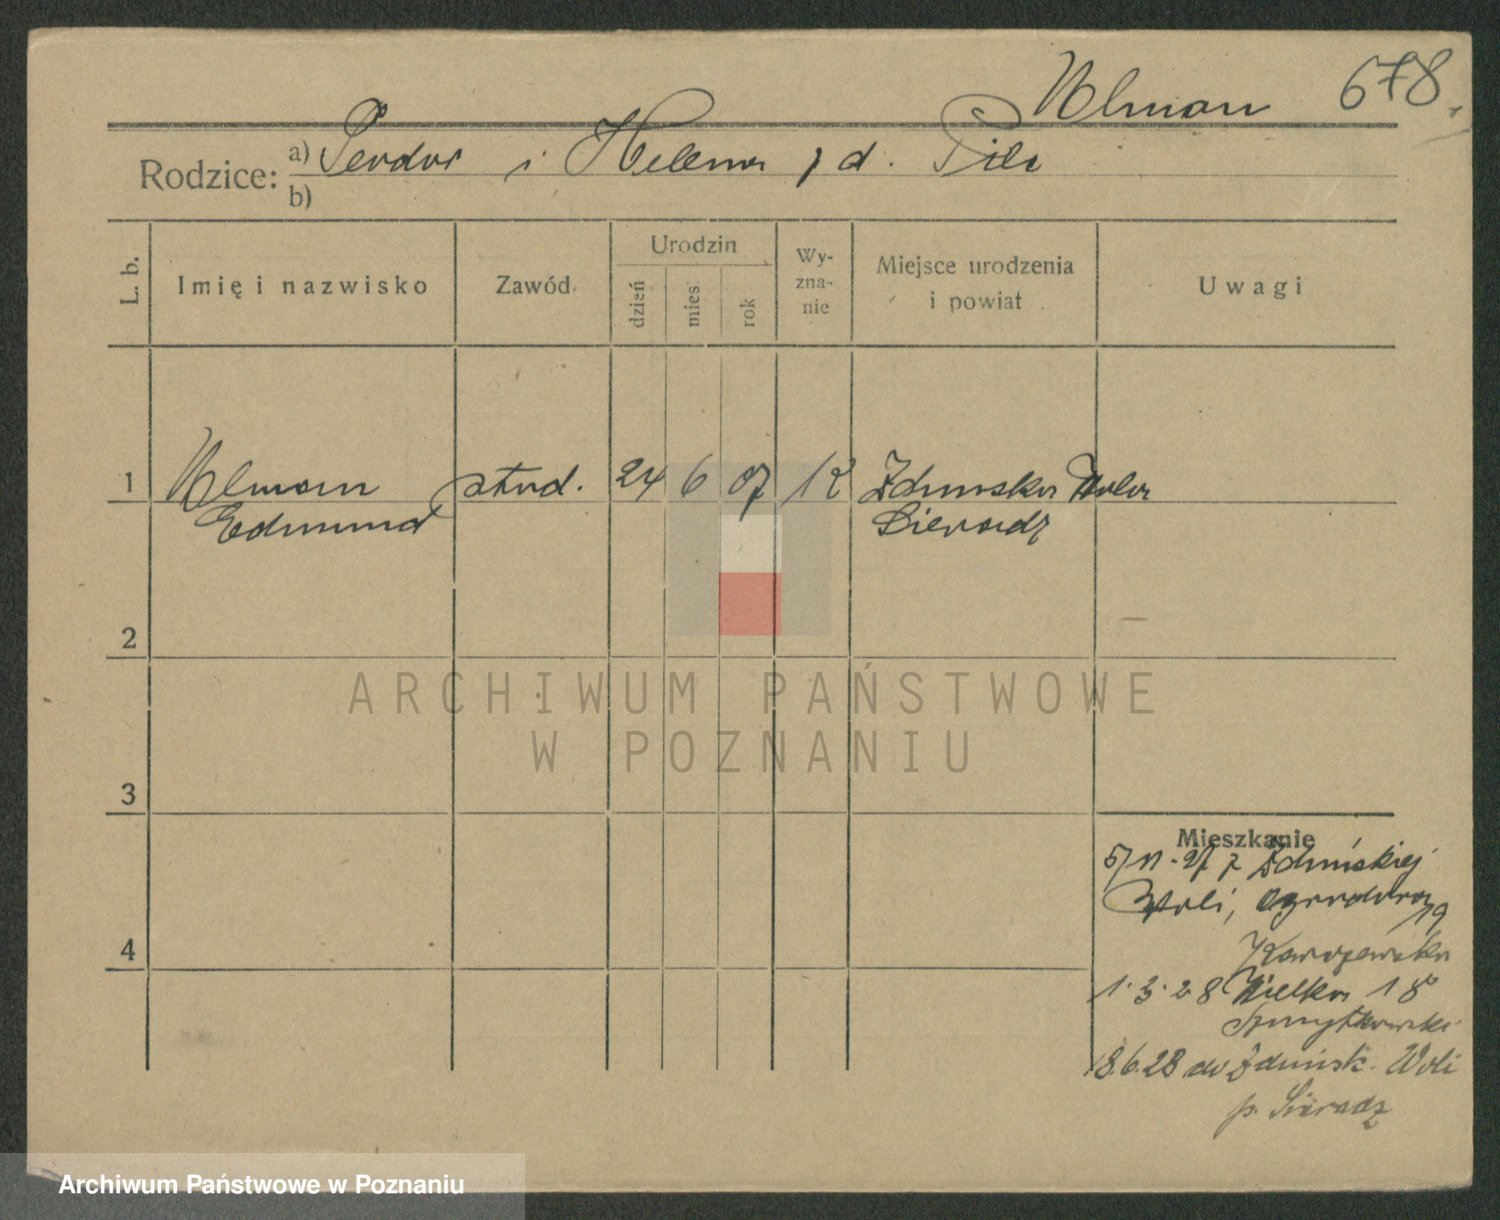 Ulman 678
Rodzice: a) Teodor i Helena z d. Pile
b)
L. b.
Imię i nazwisko
Zawód
Urodzin
dzień
mies.
rok
Wy-
zna-
nie
Miejsce urodzenia
i powiat
Uwagi
1 Ulman stud. 24 6 07 Zduńska Wola
Edmund Sieradz
2
ARCHIWUM PAŃSTWOWE
W POZNANIU
3
Mieszkanie
5/11.27 z Zduńskiej
Woli, Ogrodowa
19
4
1.3.28 Wielka 18
Szmytkowski
18.6.28 do Zduńsk. Woli
p. Sieradz
Archiwum Państwowe w Poznaniu